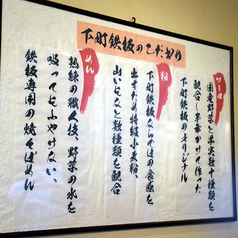 下町鉄板のこだわり
ソース
国産野菜と果実数十種類を
配合し半年かけて作った
下町鉄板のオリジナル
粉
下町鉄板ならではの食感を
出すため特級小麦粉、
山いもなど数種類を配合
めん
熟練の職人技、野菜の水を
吸ってにふやけない、
鉄板専用の焼そばめん